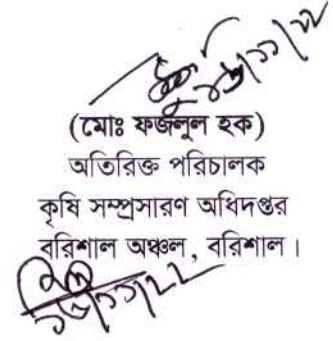 (মোঃ ফজলুল হক)
অতিরিক্ত পরিচালক
কৃষি সম্প্রসারণ অধিদপ্তর
বরিশাল অঞ্চল, বরিশাল।